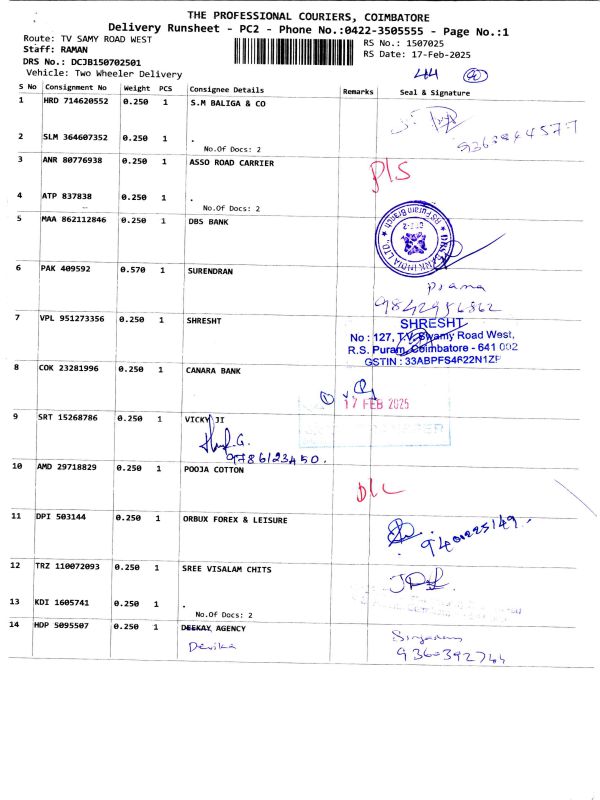 THE PROFESSIONAL COURIERS, COIMBATORE
Delivery Runsheet - PC2 - Phone No.:0422-3505555 - Page No.:1
Route: TV SAMY ROAD WEST
RS No.: 1507025
Staff: RAMAN
RS Date: 17-Feb-2025
DRS No.: DCJB150702501
Vehicle: Two Wheeler Delivery
S No Consignment No Weight PCS Consignee Details Remarks Seal & Signature
1 HRD 714620552 0.250 1 S.M BALIGA & CO
2 SLM 364607352 0.250 1 .
No.Of Docs: 2
3 ANR 80776938 0.250 1 ASSO ROAD CARRIER
4 ATP 837838 0.250 1 .
No.Of Docs: 2
5 MAA 862112846 0.250 1 DBS BANK
6 PAK 409592 0.570 1 SURENDRAN
9842956862
7 VPL 951273356 0.250 1 SHRESHT
SHRESHT
No : 127, T.V. Swamy Road West,
R.S. Puram, Coimbatore - 641 002
GSTIN : 33ABPFS4622N1ZP
8 COK 23281996 0.250 1 CANARA BANK
17 FEB 2025
9 SRT 15268786 0.250 1 VICKY JI
9786123450.
10 AMD 29718829 0.250 1 POOJA COTTON
DLC
11 DPI 503144 0.250 1 ORBUX FOREX & LEISURE
12 TRZ 110072093 0.250 1 SREE VISALAM CHITS
13 KDI 1605741 0.250 1 .
No.Of Docs: 2
14 HDP 5095507 0.250 1 DEEKAY AGENCY
Devika